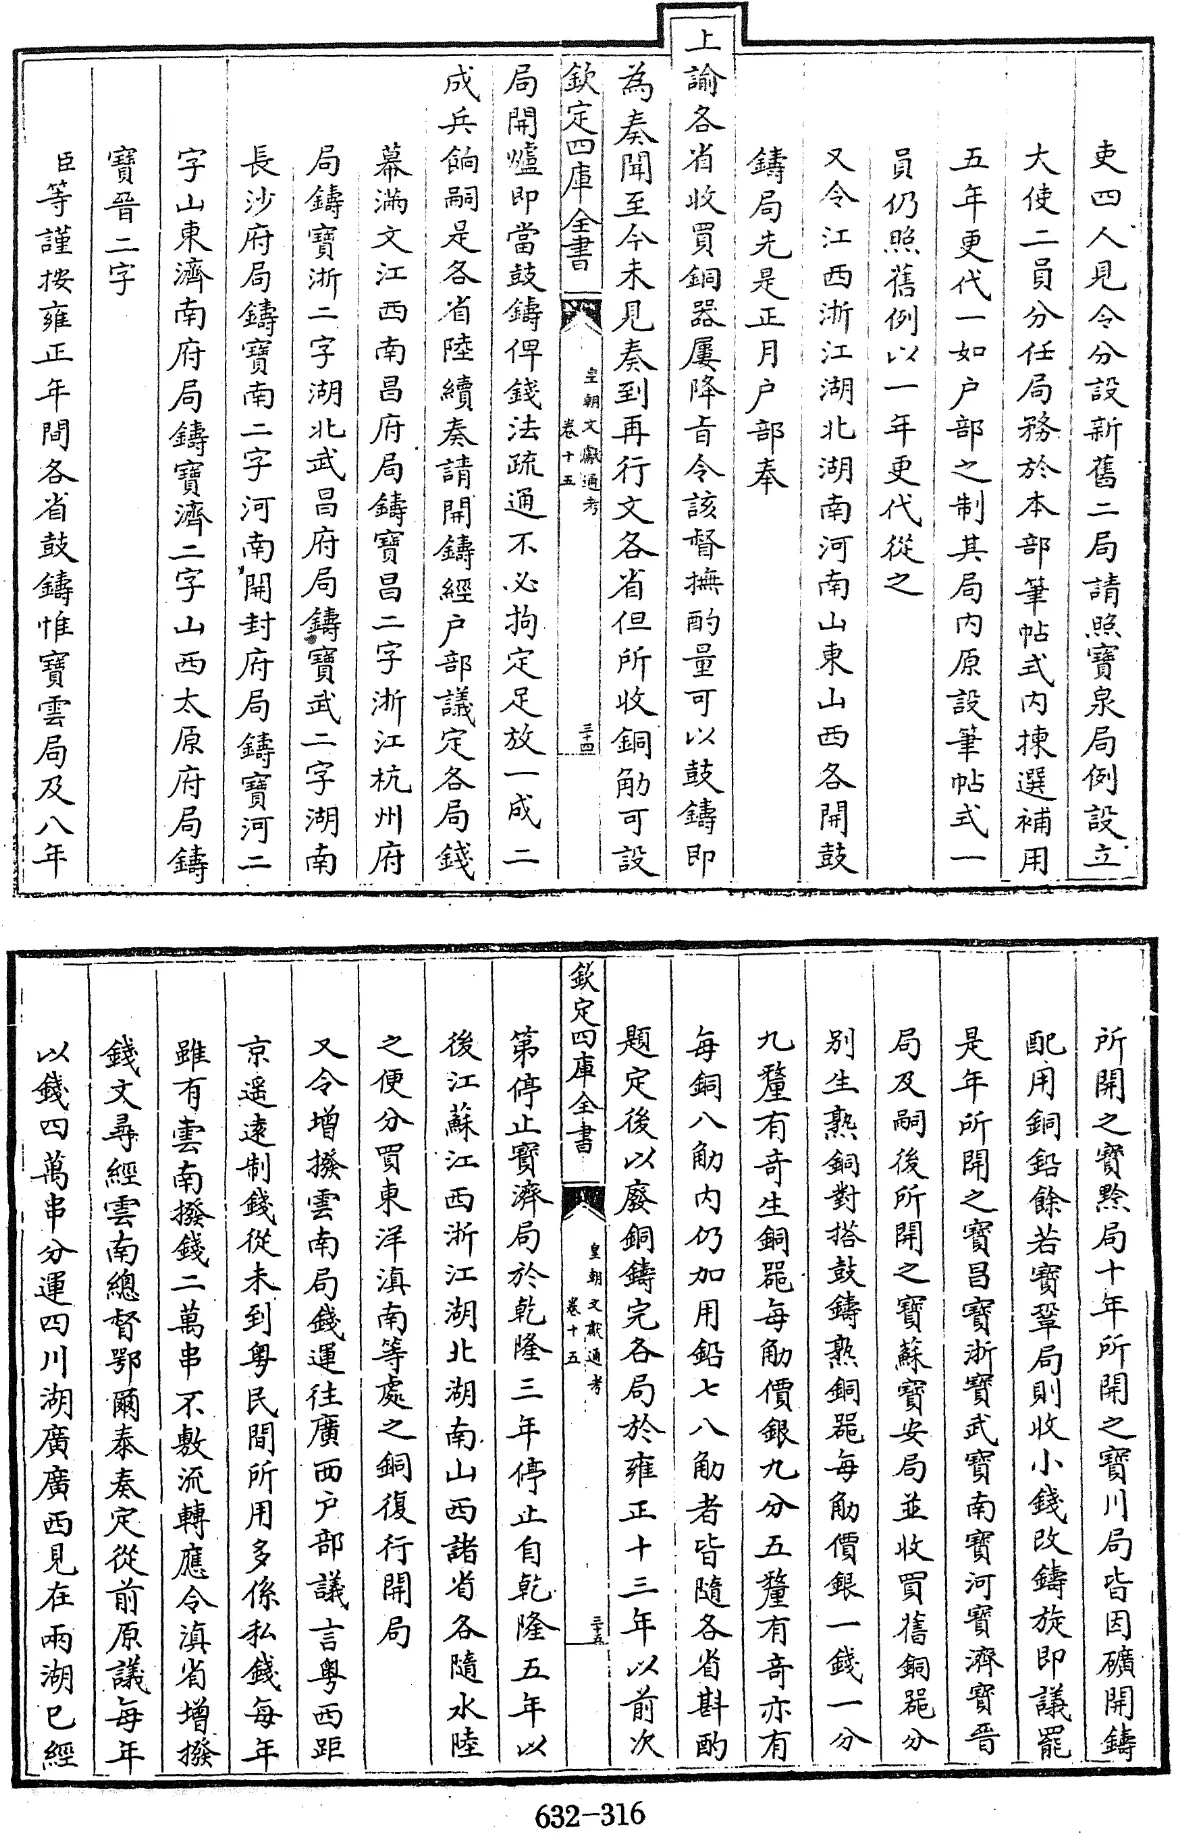 吏四人見令分設新舊二局請照寶泉局例設立
大使二員分任局務於本部筆帖式内揀選補用
五年更代一如户部之制其局内原設筆帖式一
員仍照舊例以一年更代從之
又令江西浙江湖北湖南河南山東山西各開鼓
鑄局先是正月户部奉
上諭各省收買銅器屢降旨令該督撫酌量可以鼓鑄即
為奏聞至今未見奏到再行文各省但所收銅觔可設
欽定四庫全書
皇朝文獻通考
卷十五
三十四
局開爐即當鼓鑄俾錢法疏通不必拘定足放一成二
成兵餉嗣是各省陸續奏請開鑄經户部議定各局錢
幕滿文江西南昌府局鑄寶昌二字浙江杭州府
局鑄寶浙二字湖北武昌府局鑄寶武二字湖南
長沙府局鑄寶南二字河南開封府局鑄寶河二
字山東濟南府局鑄寶濟二字山西太原府局鑄
寶晉二字
臣等謹按雍正年間各省鼓鑄惟寶雲局及八年
所開之寶黔局十年所開之寶川局皆因礦開鑄
配用銅鉛餘若寶鞏局則收小錢改鑄旋即議罷
是年所開之寶昌寶浙寶武寶南寶河寶濟寶晉
局及嗣後所開之寶蘇寶安局並收買舊銅器分
別生熟銅對搭鼓鑄熟銅器每觔價銀一錢一分
九釐有奇生銅器每觔價銀九分五釐有奇亦有
每銅八觔内仍加用鉛七八觔者皆隨各省斟酌
題定後以廢銅鑄完各局於雍正十三年以前次
欽定四庫全書
皇朝文獻通考
卷十五
三十五
第停止寶濟局於乾隆三年停止自乾隆五年以
後江蘇江西浙江湖北湖南山西諸省各隨水陸
之便分買東洋滇南等處之銅復行開局
又令增撥雲南局錢運往廣西户部議言粤西距
京遥遠制錢從未到粤民間所用多係私錢每年
雖有雲南撥錢二萬串不敷流轉應令滇省增撥
錢文尋經雲南總督鄂爾泰奏定從前原議每年
以錢四萬串分運四川湖廣廣西見在兩湖已經
632-316